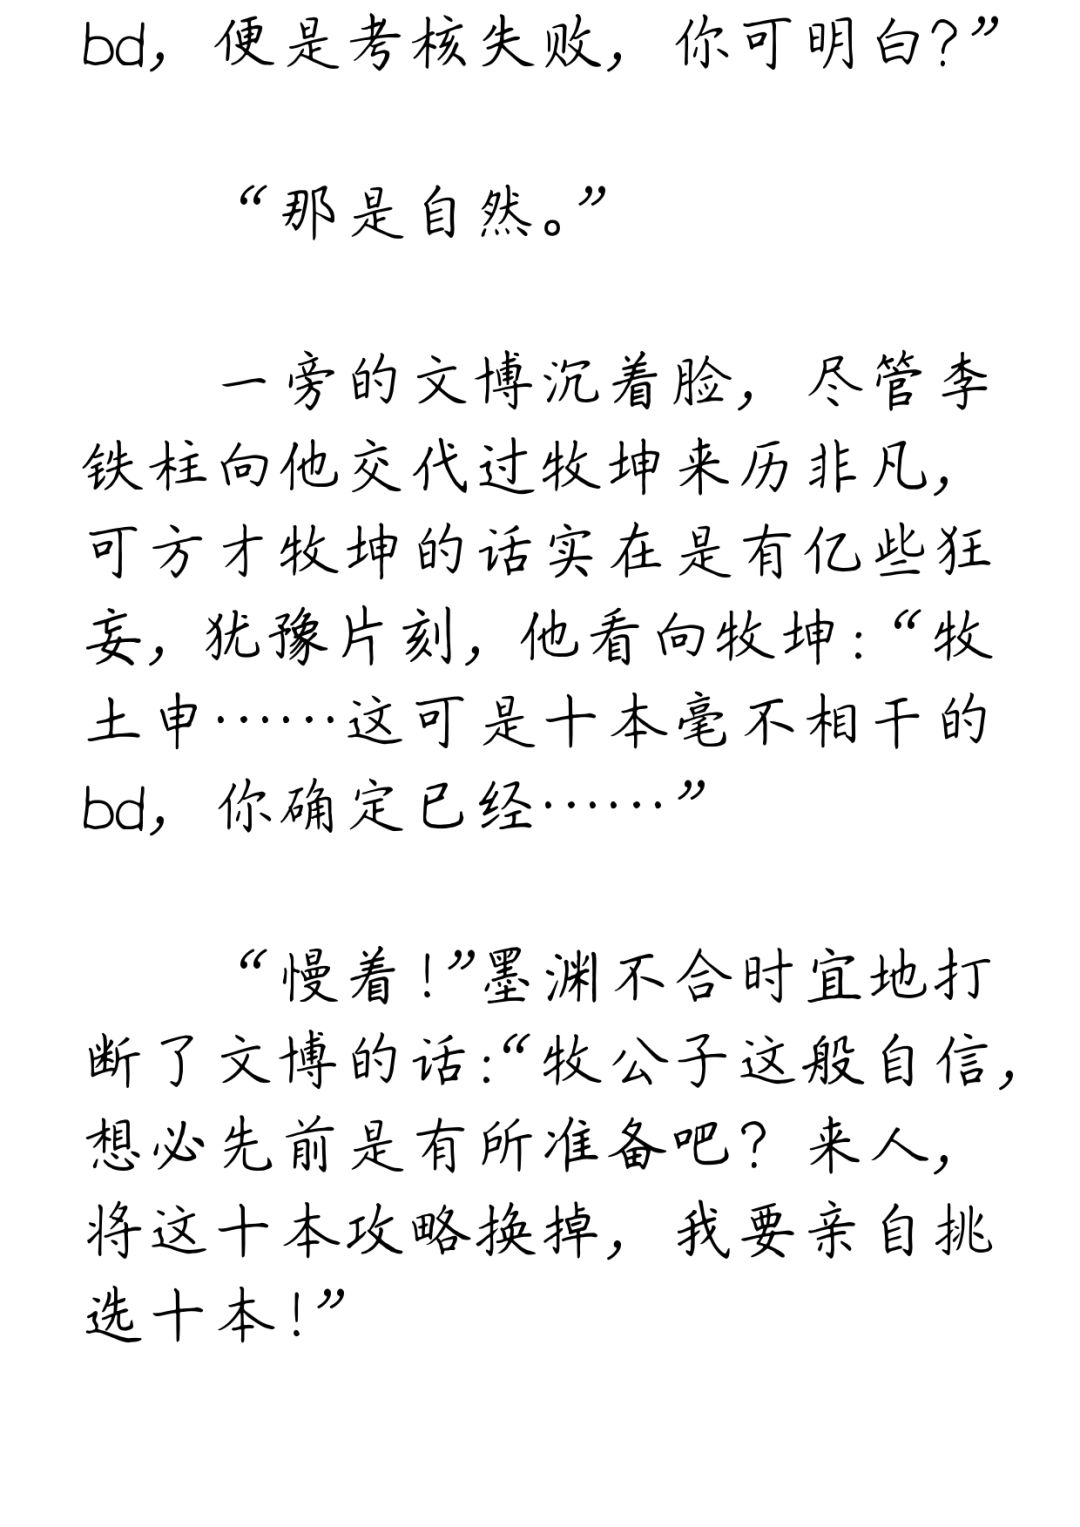 bd，便是考核失败，你可明白？”
“那是自然。”
一旁的文博沉着脸，尽管李
铁柱向他交代过牧坤来历非凡，
可方才牧坤的话实在是有亿些狂
妄，犹豫片刻，他看向牧坤：“牧
土申……这可是十本毫不相干的
bd，你确定已经……”
“慢着！”墨渊不合时宜地打
断了文博的话：“牧公子这般自信，
想必先前是有所准备吧？来人，
将这十本攻略换掉，我要亲自挑
选十本！”